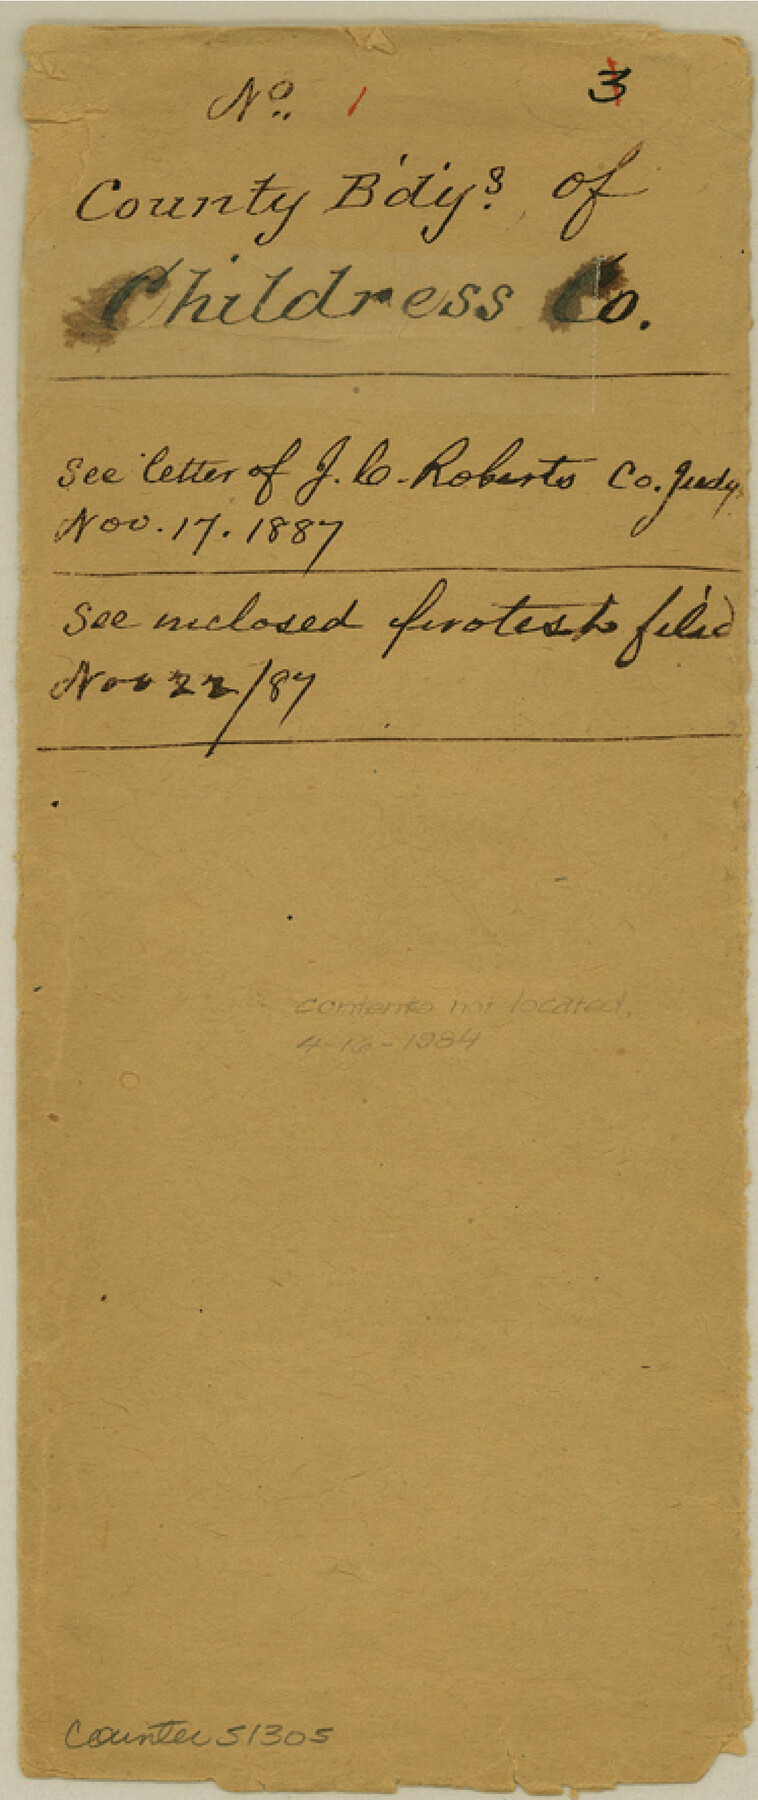 No. 1 3
County B'd'ys. of
Childress Co.
See letter of J. C. Roberts Co. Judg
Nov. 17. 1887
See inclosed protest filed
Nov 22/87
contents not located.
4-16-1984
Counter 51305